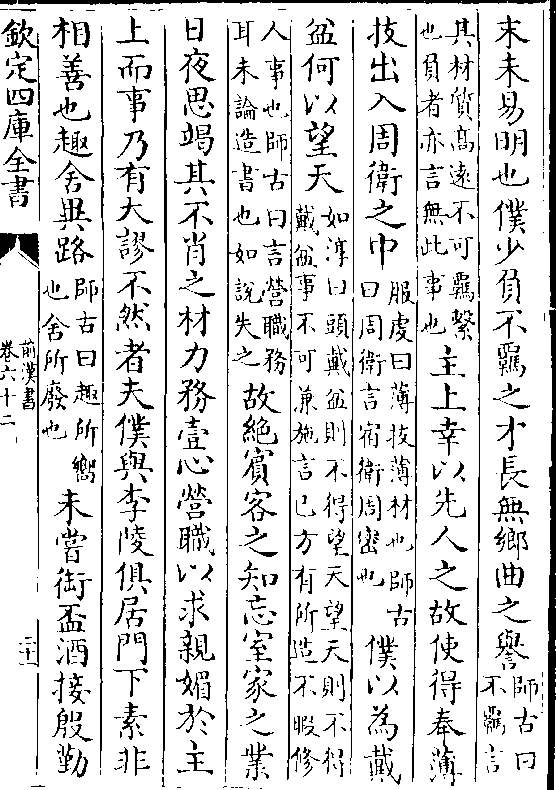 末未易明也僕少負不羈之才長無鄉曲之譽師古曰不羈言
其材質高遠不可羈繫也負者亦言無此事也主上幸以先人之故使得奉薄
技出入周衛之中服虔曰薄技薄材也師古曰周衛言宿衛周密也僕以為戴
盆何以望天如淳曰頭戴盆則不得望天望天則不得戴盆事不可兼施言已方有所造不暇修
人事也師古曰言營職務耳未論造書也如說失之故絶賓客之知忘室家之業
日夜思竭其不肖之材力務壹心營職以求親媚於主
上而事乃有大謬不然者夫僕與李陵俱居門下素非
相善也趣舍異路師古曰趣所嚮也舍所廢也未嘗銜盃酒接殷勤
欽定四庫全書
前漢書
卷六十二
二十一